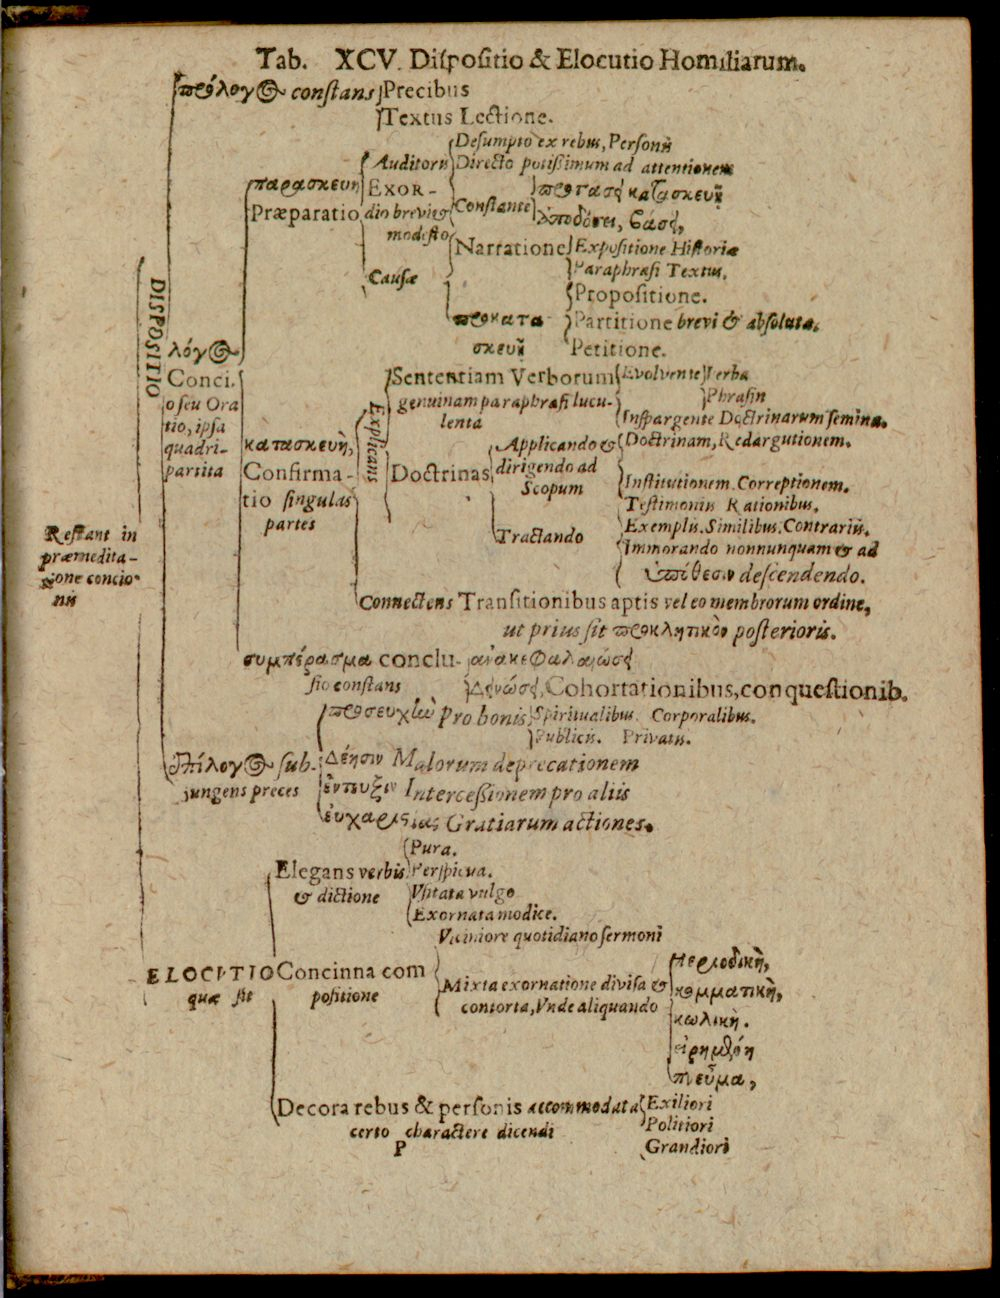 Tab. XCV. Dispositio & Elocutio Homiliarum.
πρόλογος constans Precibus
Textus Lectione.
Desumpto ex rebus, Personis
Auditoris Directo potissimum ad attentionem
παρασκευη Exor-
προτασει κατασκευῇ
Præparatio dio brevi & Constante
ἀποδόσει, βάσει,
modesto Narratione Expositione Historiæ
Causæ Paraphrasi Textus.
Propositione.
προκατα Partitione brevi & absoluta.
σκευῇ Petitione.
DISPOSITIO
λόγος
Conci.
o seu Ora
tio, ipsa
quadri-
partita
Sententiam Verborum Evolvente Verba
genuinam paraphrasi lucu- Phrasin
lenta Inspargente Doctrinarum semina.
Explicans
κατασκευὴ, Applicando & Doctrinam, Redargutionem.
Confirma- Doctrinas dirigendo ad
tio singulas Scopum Institutionem. Correptionem.
partes Testimoniis Rationibus,
Tractando Exemplis. Similibus. Contrariis.
Restant in
præmedita-
tione concio
nis
Immorando nonnunquam & ad
ὑπόθεσιν descendendo.
Connectens Transitionibus aptis vel eo membrorum ordine,
ut prius sit προκλητικὸν posterioris.
συμπέρασμα conclu- ανακεφαλαιώσει
sio constans Δεινώσει, Cohortationibus, conquestionib.
προσευχὼ pro bonis Spiritualibus. Corporalibus.
Publicis. Privatis.
ἐπίλογος sub- Δέησιν Malorum deprecationem
jungens preces ἐντευξιν Intercessionem pro aliis
ἐυχαριστίας Gratiarum actiones.
Pura.
Elegans verbis Perspicua.
& dictione Vsitata vulgo
Exornata modice.
Viciniore quotidiano sermoni
ELOCUTIO Concinna com
quæ sit positione Mixta exornatione divisa &
contorta, Vnde aliquando
περιοδικὴ,
κομματικὴ,
κωλικὴ.
εἰρημένη
πνεῦμα,
Decora rebus & personis accommodata Exiliori
certo charactere dicendi Politiori
P Grandiori